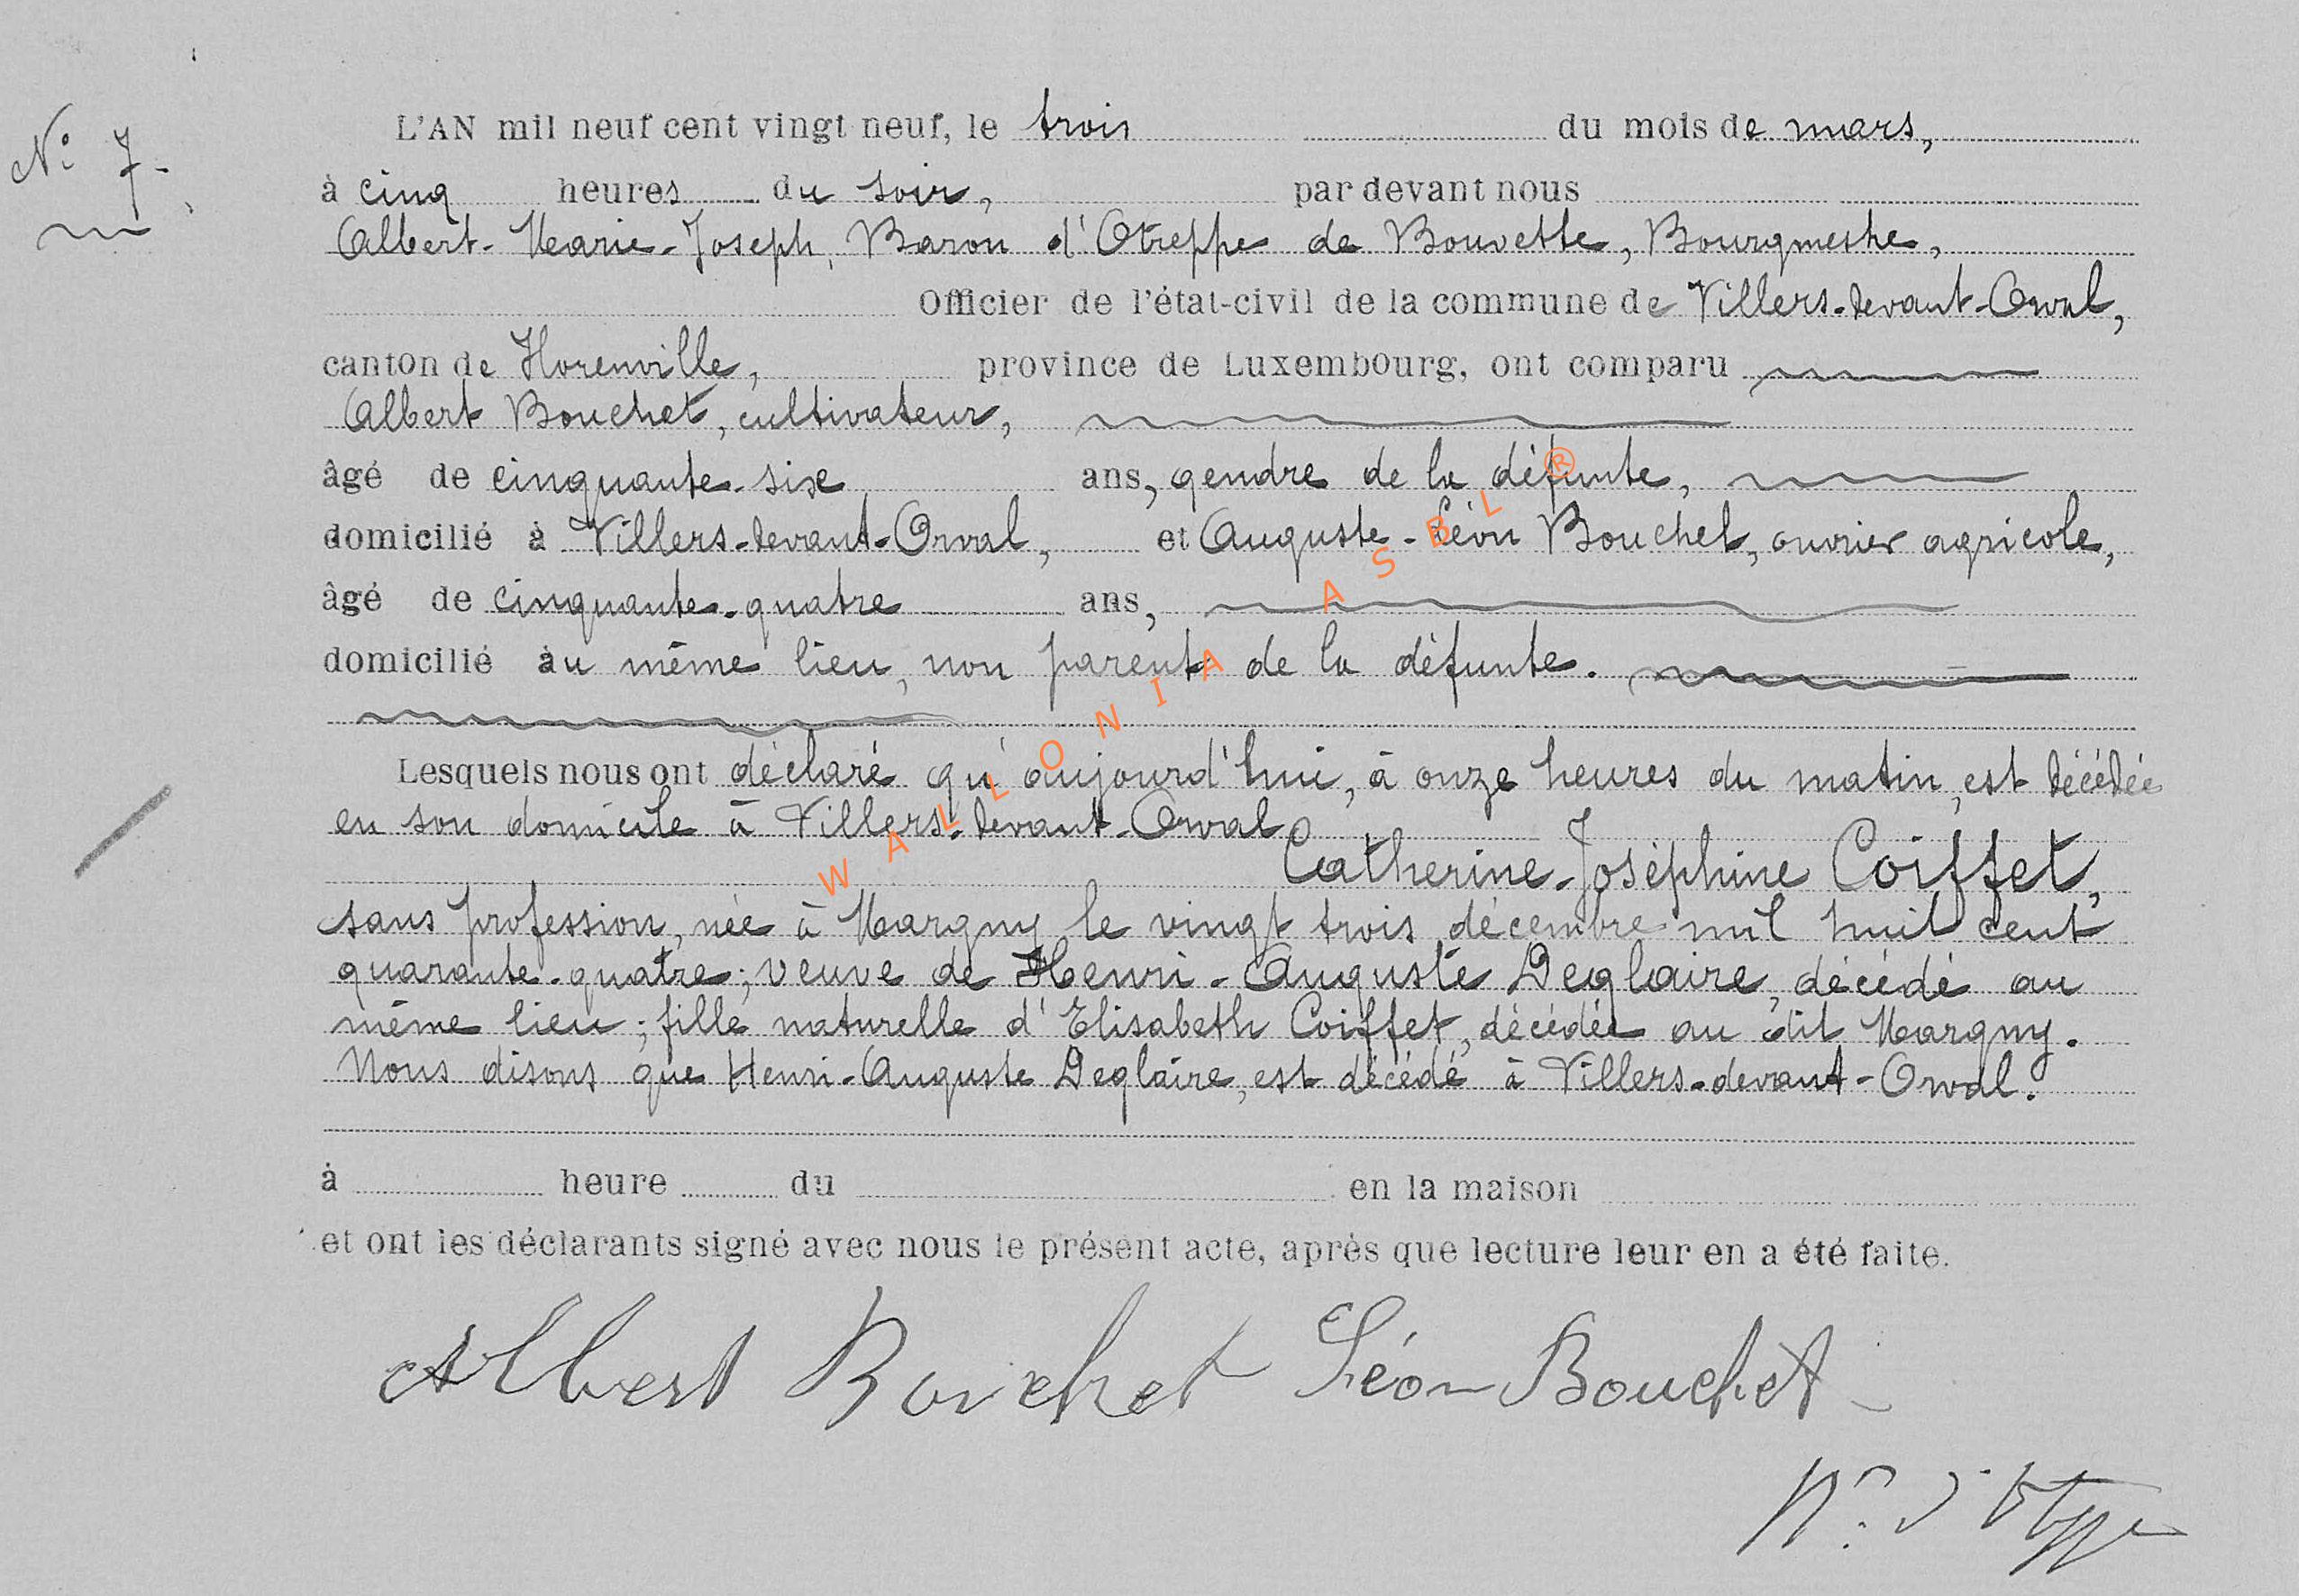 N° 7.
L'AN mil neuf cent vingt neuf, le trois du mois de mars,
à cinq heures du soir, par devant nous
Albert-Marie-Joseph, Baron d'Otreppe de Bouvette, Bourgmestre,
Officier de l'état-civil de la commune de Villers-devant-Orval,
canton de Florenville, province de Luxembourg, ont comparu
Albert Bouchet, cultivateur,
âgé de cinquante-six ans, gendre de la défunte,
domicilié à Villers-devant-Orval, et Auguste-Léon Bouchet, ouvrier agricole,
âgé de cinquante-quatre ans,
domicilié au même lieu, non parent de la défunte.
Lesquels nous ont déclaré qu'aujourd'hui, à onze heures du matin, est décédée
en son domicile à Villers-devant-Orval
Catherine-Joséphine Coiffet,
sans profession, née à Margny le vingt trois décembre mil huit cent
quarante-quatre; veuve de Henri-Auguste Deglaire, décédé au
même lieu; fille naturelle d'Elisabeth Coiffet, décédée au dit Margny.
Nous disons que Henri-Auguste Deglaire, est décédé à Villers-devant-Orval.
à heure du en la maison
et ont les déclarants signé avec nous le présent acte, après que lecture leur en a été faite.
Albert Bouchet Léon Bouchet
d'Otreppe
WALLONIA ASBL ®